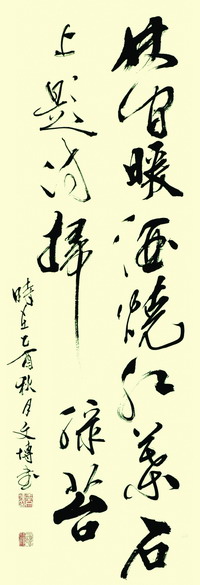 林间暖酒烧红叶石
上题诗扫绿苔
时在乙酉秋月文博书